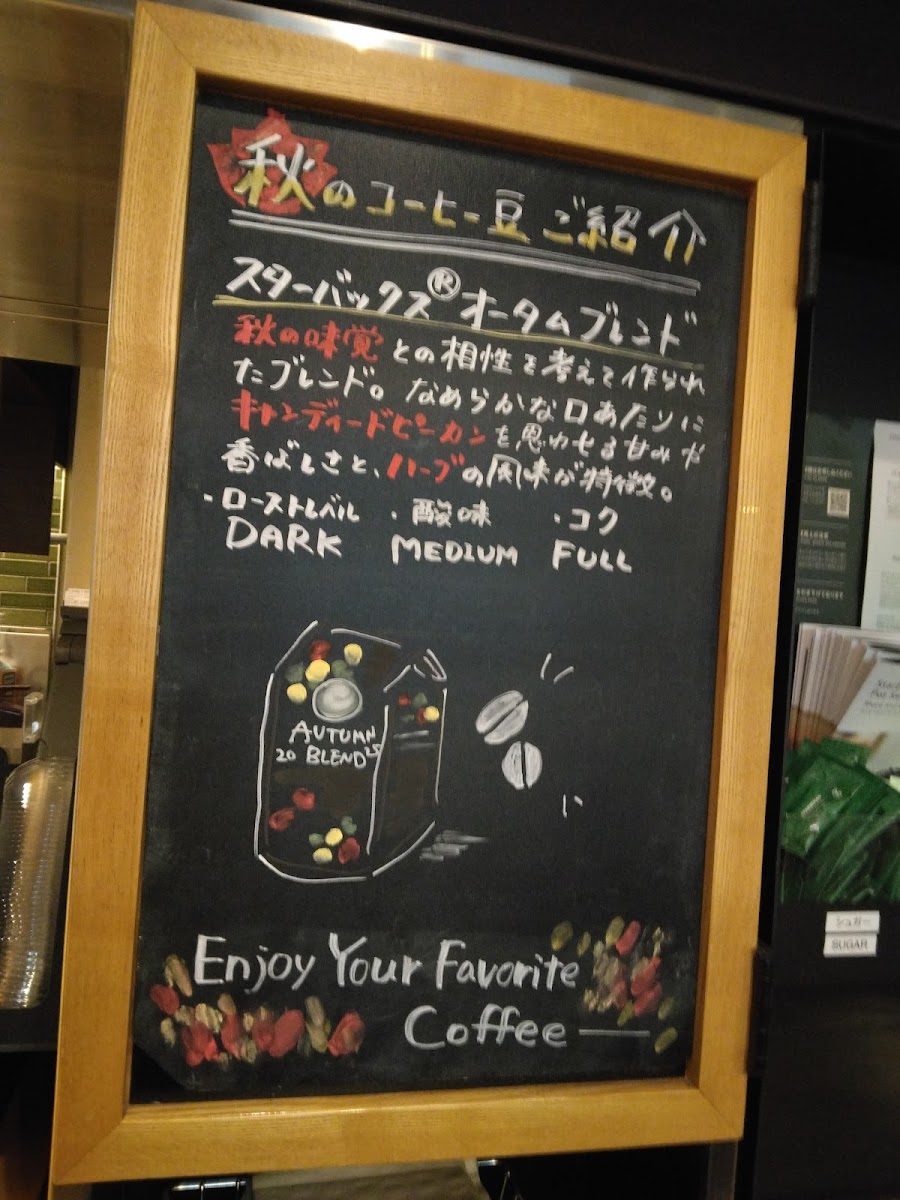 秋のコーヒー豆ご紹介
スターバックス® オータムブレンド
秋の味覚との相性を考えて作られ
たブレンド。なめらかな口あたりに
キャンディードピーカンを思わせる甘みや
香ばしさと、ハーブの風味が特徴。
・ローストレベル ・酸味 ・コク
DARK MEDIUM FULL
AUTUMN
20 BLEND 25
Enjoy Your Favorite
Coffee
シュガー
SUGAR